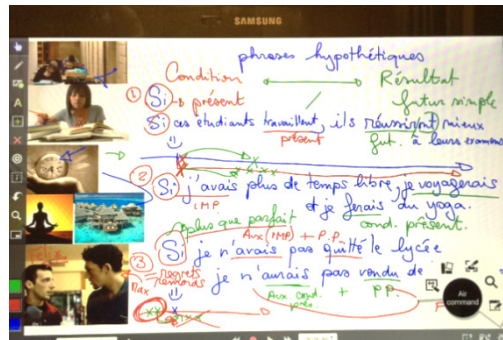 SAMSUNG
phrases hypothétiques
Condition
Résultat
① Si → présent
futur simple
Si ces étudiants travaillent, ils réussiront mieux
présent
fut. à leurs examens
② Si j'avais plus de temps libre, je voyagerais
IMP
et je ferais du yoga.
plus que parfait
cond. présent.
Aux (IMP) + P.P.
③ Si je n'avais pas quitté le lycée
regrets
remords
je n'aurais pas vendu de
Aux cond. + P.P.
FELIX
Max
Air
command